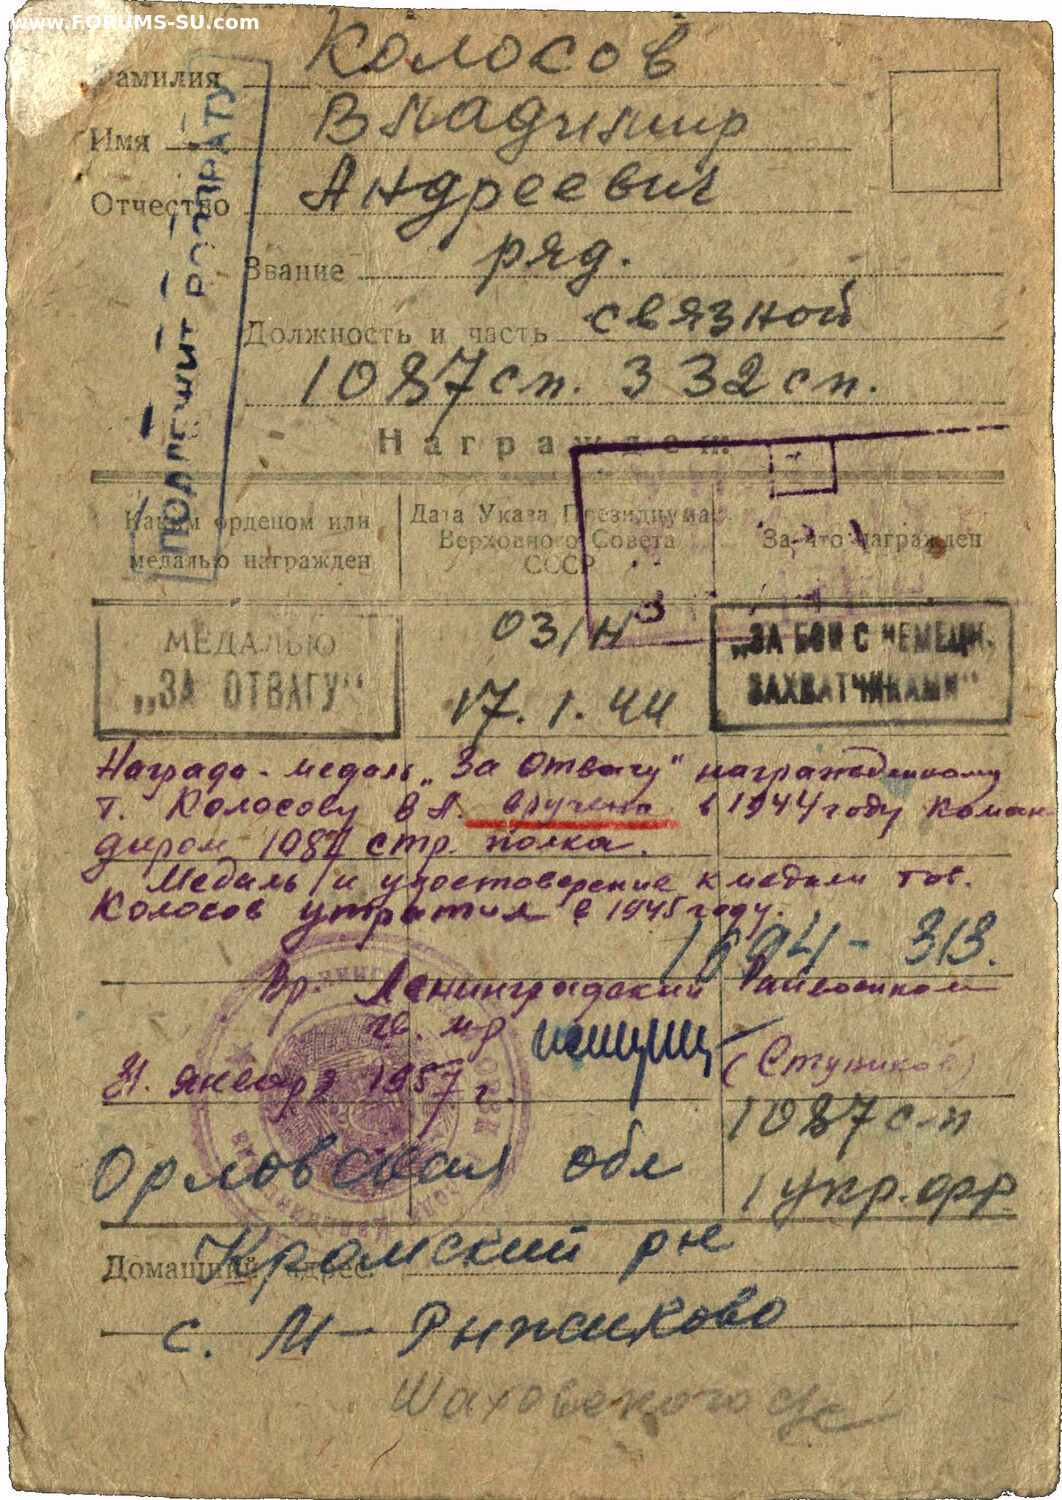 www.FORUMS-SU.com
Фамилия Колосов
Имя Владимир
Отчество Андреевич
Звание ряд.
Должность и часть связной
1087 сп. 332 сп.
ПОДЛЕЖИТ ВОЗВРАТУ
Награжден:
Каким орденом или медалью награжден
Дата Указа Президиума Верховного Совета СССР
За что награжден
МЕДАЛЬЮ
„ЗА ОТВАГУ“
03/Н
17.1.44
„ЗА БОИ С НЕМЕЦК.
ЗАХВАТЧИКАМИ“
Награда - медаль „За Отвагу" награжденному
т. Колосову В А. вручена в 1944 году коман-
диром 1087 стр. полка.
Медаль и удостоверение к медали тов.
Колосов утратил в 1945 году.
313.
Вр. Ленинградский Райвоенком
гв. м-р
(Ступиков)
31. января 1957 г.
1087 сп
1 укр. фр.
Орловская обл
Домашний адрес:
Кромский рн
с. М-Рыжиково
Шаховского с/с